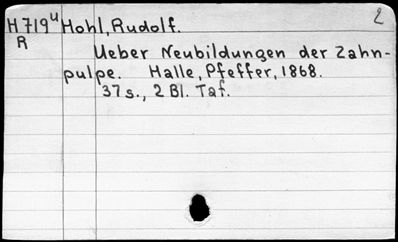 2
H719u Hohl, Rudolf.
R
Ueber Neubildungen der Zahn-
pulpe. Halle, Pfeffer, 1868.
37 s., 2 Bl. Taf.